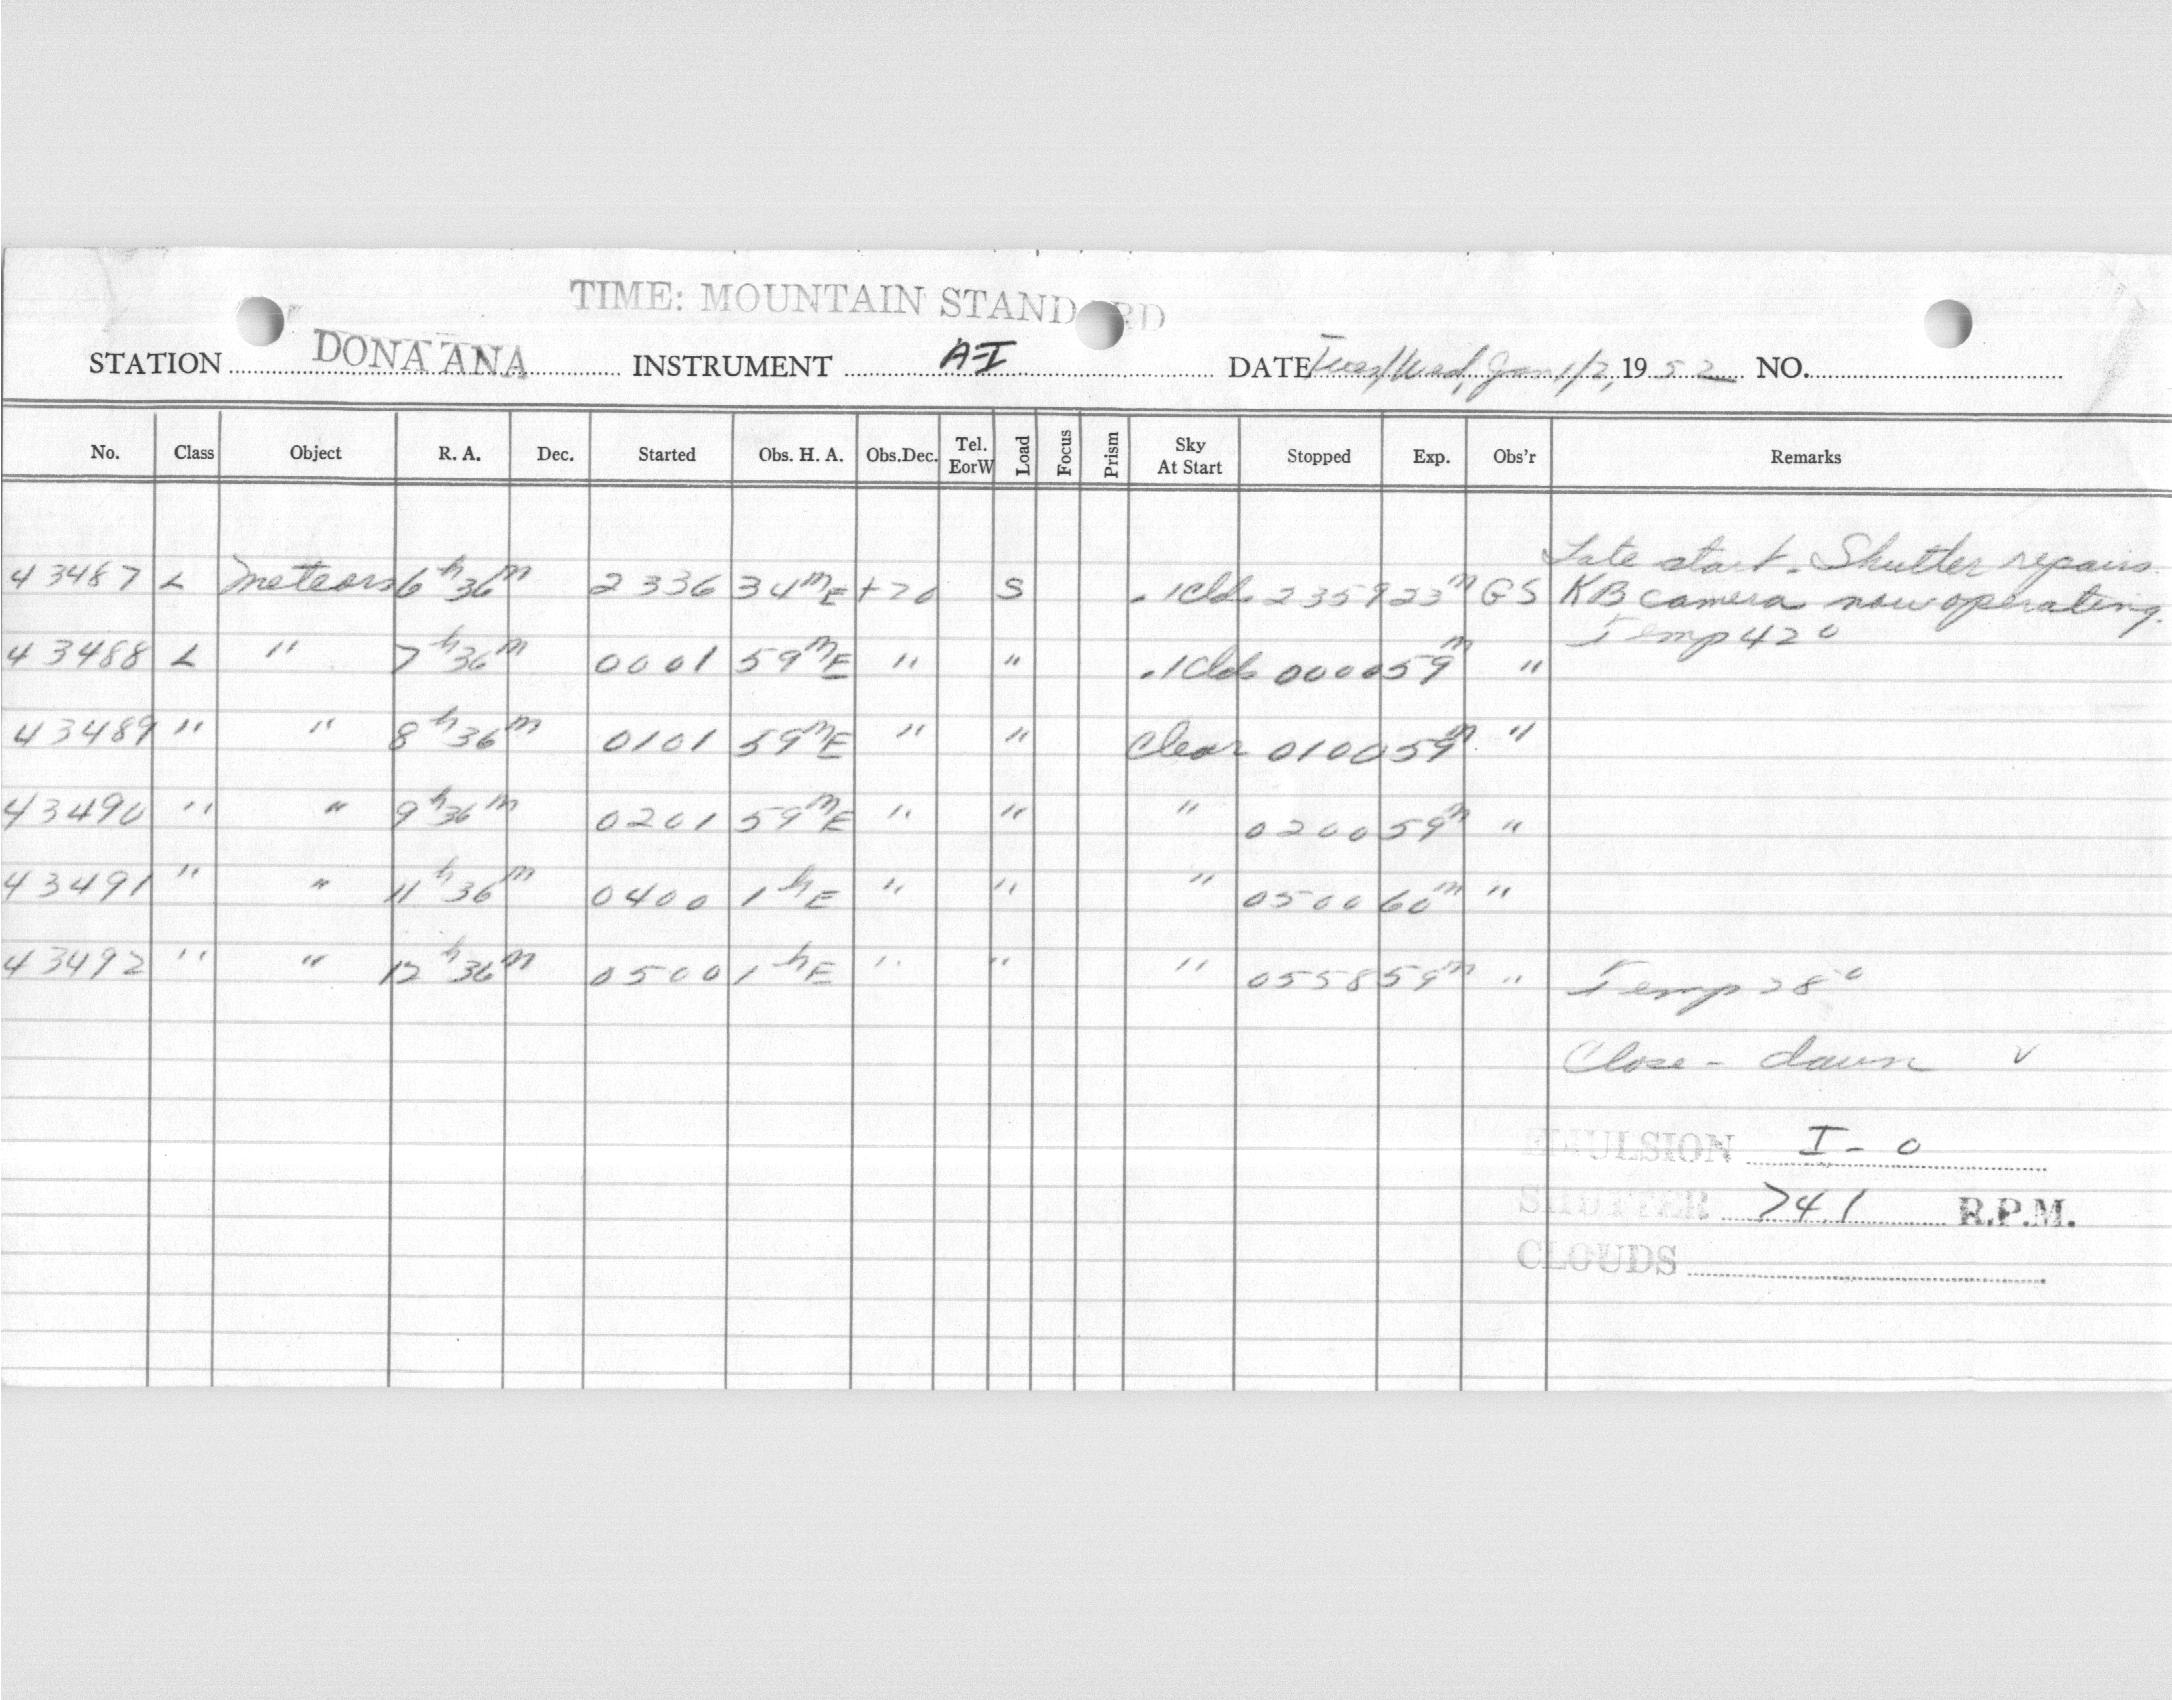 TIME: MOUNTAIN STANDARD
STATION DONA ANA INSTRUMENT A-I DATE Tues/Wed, Jan 1/2, 1952 NO.
No. Class Object R. A. Dec. Started Obs. H. A. Obs.Dec. Tel. EorW Load Focus Prism Sky At Start Stopped Exp. Obs'r Remarks
Late start. Shutter repairs.
43487 L Meteors 6h 36m 2336 34mE +70 S .1 Cld. 2359 23m GS KB camera now operating.
Temp 42°
43488 L " 7h 36m 0001 59mE " " .1 Cld. 0000 59m "
43489 " " 8h 36m 0101 59mE " " Clear 0100 59m "
43490 " " 9h 36m 0201 59mE " " " 0200 59m "
43491 " " 11h 36m 0400 1hE " " " 0500 60m "
43492 " " 12h 36m 0500 1hE " " " 0558 59m " Temp 28°
Close - dawn v
EMULSION I-0
SHUTTER 741 R.P.M.
CLOUDS